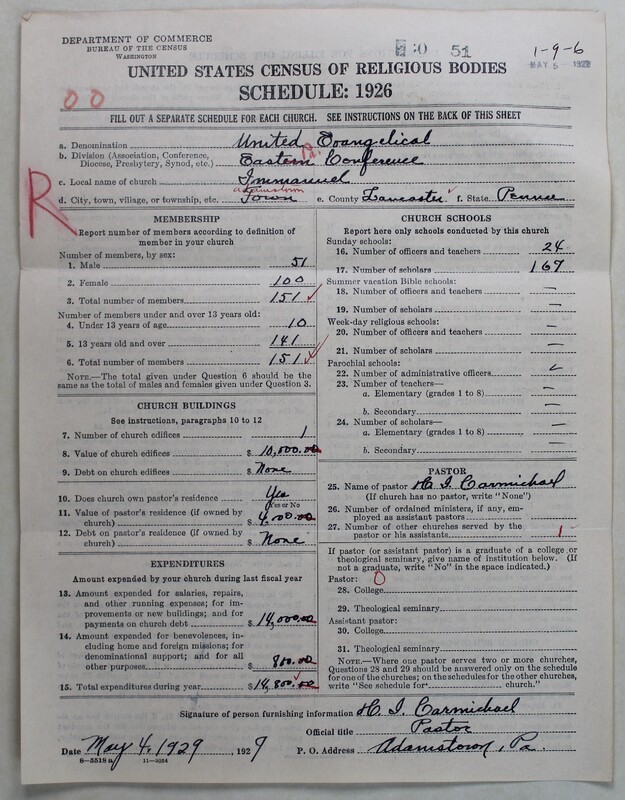 DEPARTMENT OF COMMERCE
BUREAU OF THE CENSUS
WASHINGTON
30 51
1-9-6
MAY 5 - 1929
UNITED STATES CENSUS OF RELIGIOUS BODIES
SCHEDULE: 1926
00
FILL OUT A SEPARATE SCHEDULE FOR EACH CHURCH. SEE INSTRUCTIONS ON THE BACK OF THIS SHEET
a. Denomination United Evangelical
b. Division (Association, Conference, Diocese, Presbytery, Synod, etc.) Eastern Pa. Conference
c. Local name of church Immanuel
R
d. City, town, village, or township, etc. Adamstown Town e. County Lancaster f. State Penna
MEMBERSHIP
Report number of members according to definition of member in your church
Number of members, by sex:
1. Male 51
2. Female 100
3. Total number of members 151
Number of members under and over 13 years old:
4. Under 13 years of age 10
5. 13 years old and over 141
6. Total number of members 151
NOTE.—The total given under Question 6 should be the same as the total of males and females given under Question 3.
CHURCH BUILDINGS
See instructions, paragraphs 10 to 12
7. Number of church edifices 1
8. Value of church edifices $ 10,000.00
9. Debt on church edifices $ None
10. Does church own pastor's residence Yes
Yes or No
11. Value of pastor's residence (if owned by church) $ 4,000.00
12. Debt on pastor's residence (if owned by church) $ None
EXPENDITURES
Amount expended by your church during last fiscal year
13. Amount expended for salaries, repairs, and other running expenses; for improvements or new buildings; and for payments on church debt $ 14,000.00
14. Amount expended for benevolences, including home and foreign missions; for denominational support; and for all other purposes $ 800.00
15. Total expenditures during year $ 14,800.00
CHURCH SCHOOLS
Report here only schools conducted by this church
Sunday schools:
16. Number of officers and teachers 24
17. Number of scholars 167
Summer vacation Bible schools:
18. Number of officers and teachers —
19. Number of scholars —
Week-day religious schools:
20. Number of officers and teachers —
21. Number of scholars —
Parochial schools:
22. Number of administrative officers —
23. Number of teachers—
a. Elementary (grades 1 to 8) —
b. Secondary —
24. Number of scholars—
a. Elementary (grades 1 to 8) —
b. Secondary —
PASTOR
25. Name of pastor H. I. Carmichael
(If church has no pastor, write "None")
26. Number of ordained ministers, if any, employed as assistant pastors
27. Number of other churches served by the pastor or his assistants 1
If pastor (or assistant pastor) is a graduate of a college or theological seminary, give name of institution below. (If not a graduate, write "No" in the space indicated.)
Pastor: 0
28. College
29. Theological seminary
Assistant pastor:
30. College
31. Theological seminary
NOTE.—Where one pastor serves two or more churches, Questions 28 and 29 should be answered only on the schedule for one of the churches; on the schedules for the other churches, write "See schedule for church."
Signature of person furnishing information H. I. Carmichael
Official title Pastor
Date May 4, 1929, 1929 P. O. Address Adamstown, Pa.
8—5518 a 11—3034